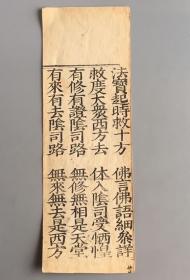 法寶起時救十方　佛言佛語細叅詳
救度大衆西方去　体入陰司受恓惶
有修有證陰司路　無修無相是天堂
有來有去陰司路　無來無去是西方